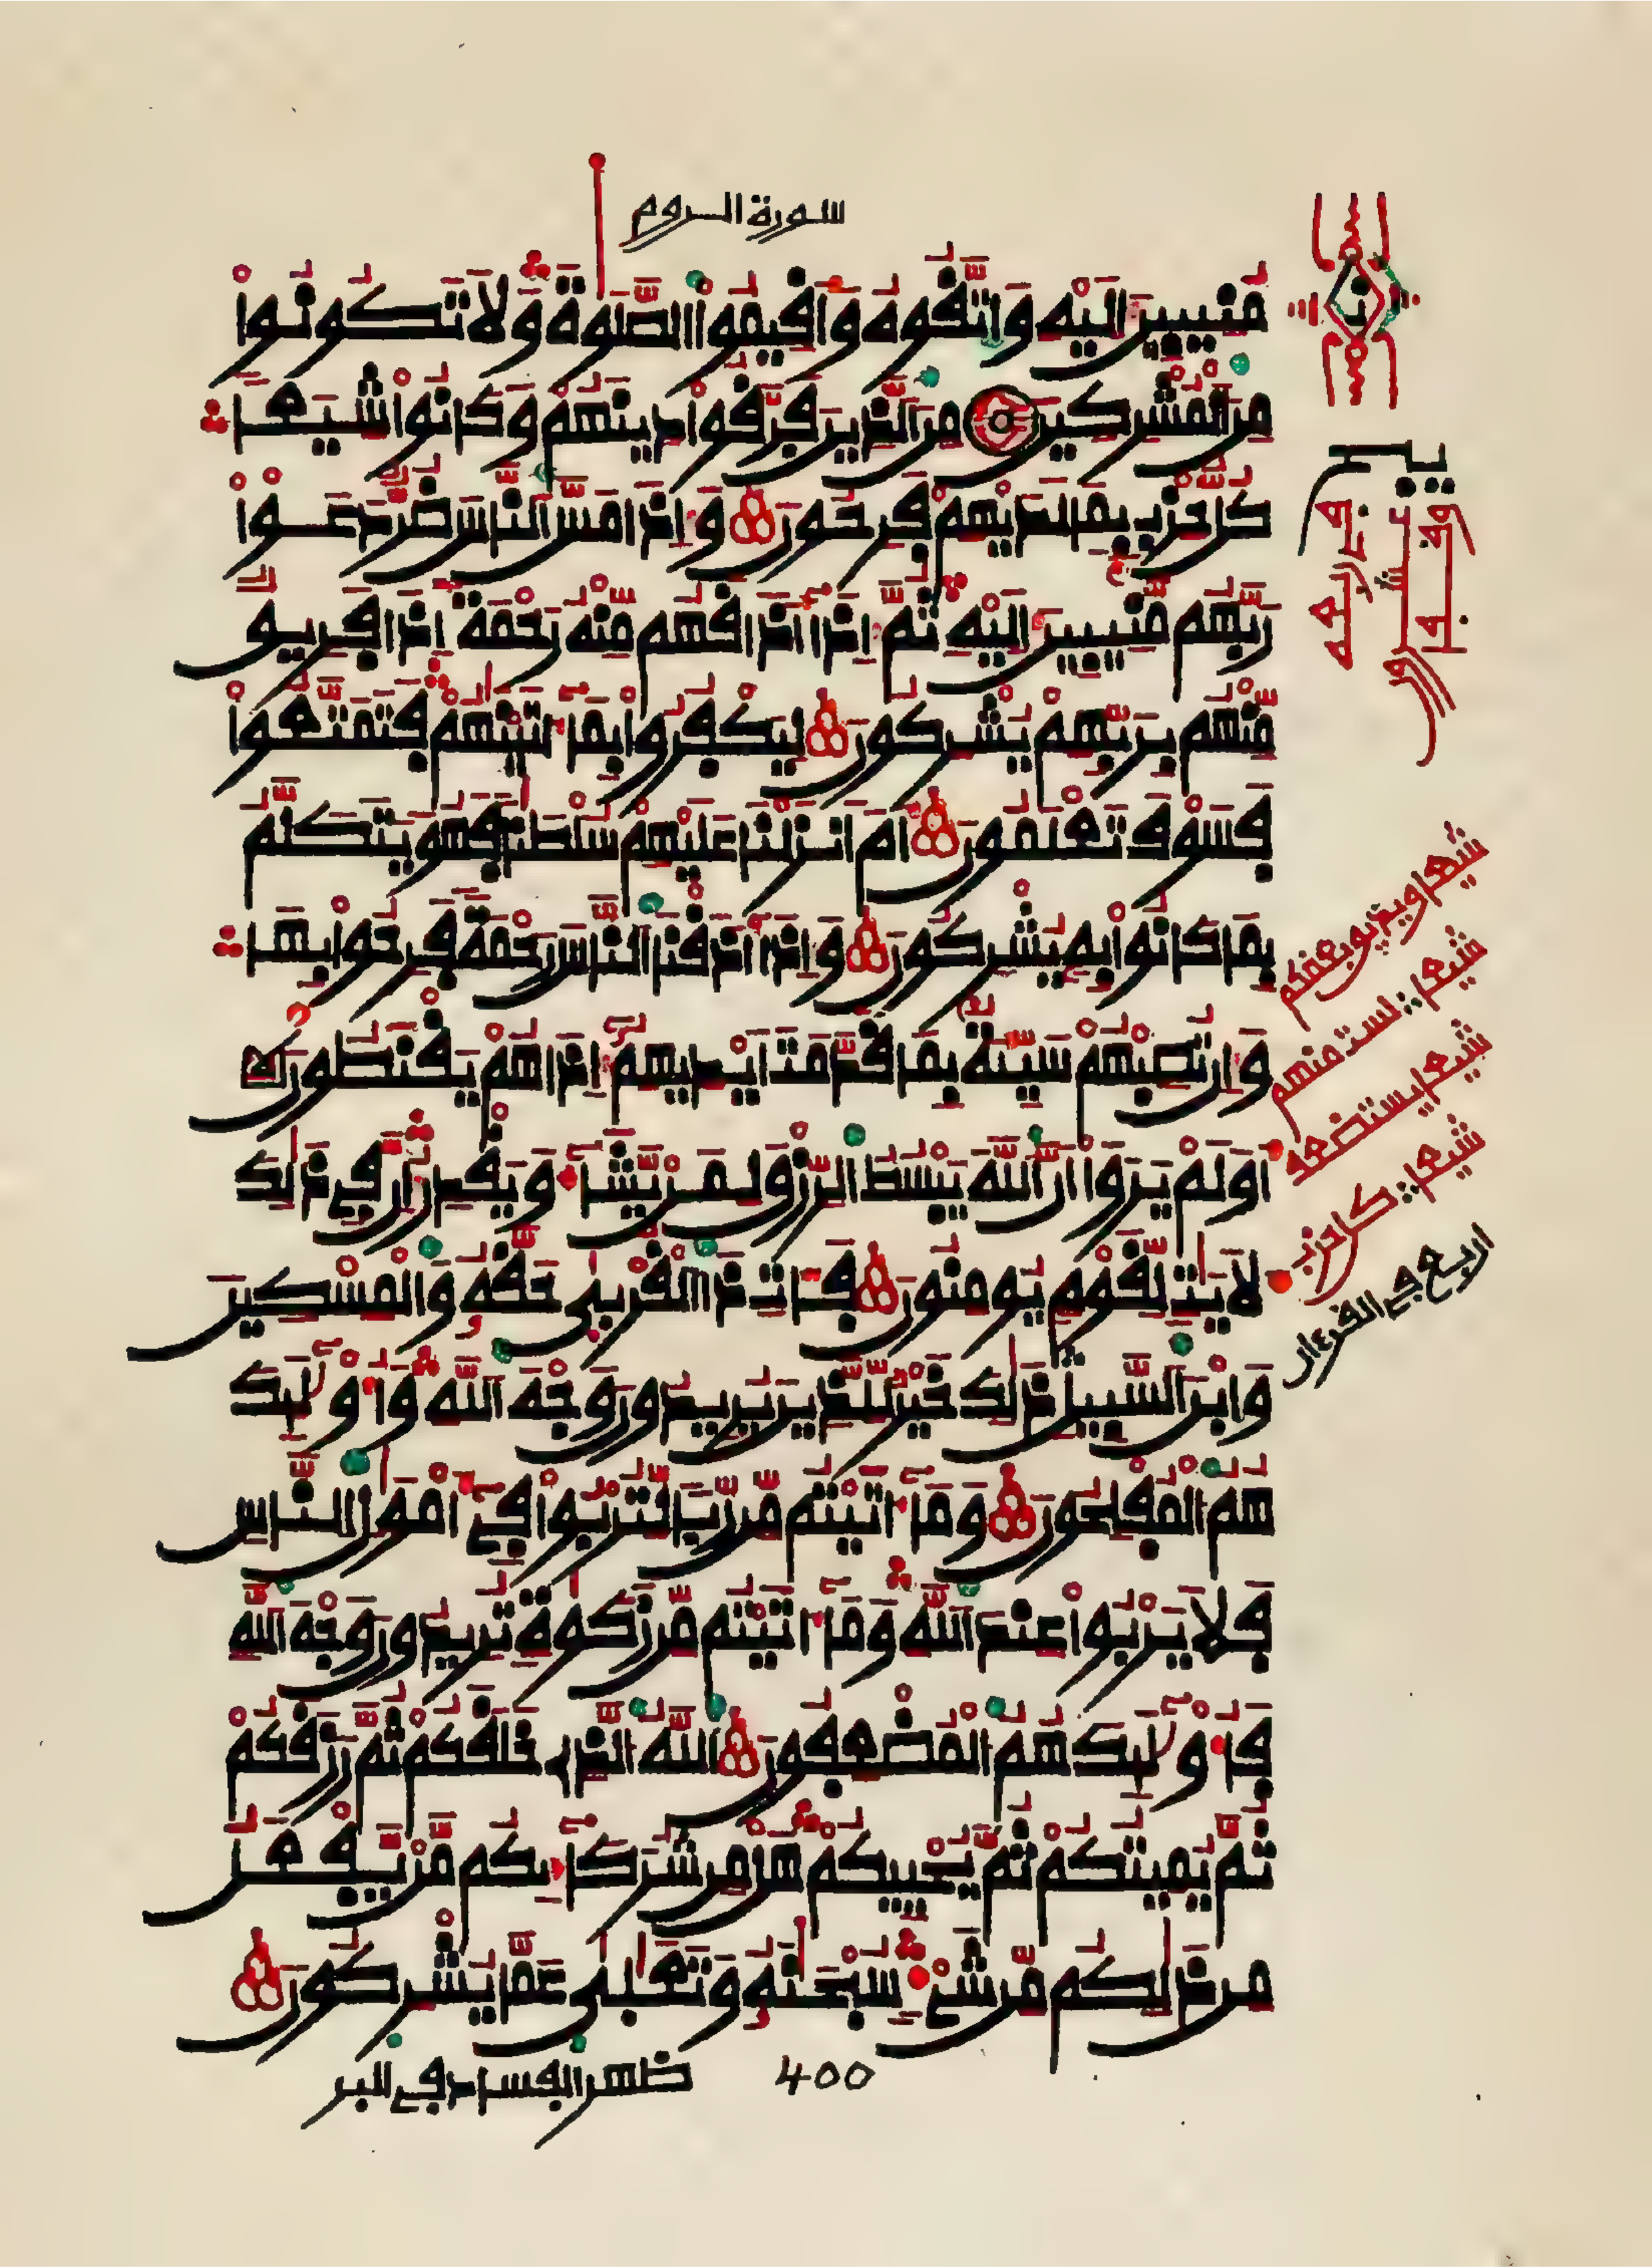 سورة الروم
مُنِيبِينَ إِلَيْهِ وَاتَّقُوهُ وَأَقِيمُوا الصَّلَوٰةَ وَلَا تَكُونُوا
مِنَ الْمُشْرِكِينَ مِنَ الَّذِينَ فَرَّقُوا دِينَهُمْ وَكَانُوا شِيَعًا
كُلُّ حِزْبٍ بِمَا لَدَيْهِمْ فَرِحُونَ وَإِذَا مَسَّ النَّاسَ ضُرٌّ دَعَوْا
رَبَّهُم مُّنِيبِينَ إِلَيْهِ ثُمَّ إِذَا أَذَاقَهُم مِّنْهُ رَحْمَةً إِذَا فَرِيقٌ
مِّنْهُم بِرَبِّهِمْ يُشْرِكُونَ لِيَكْفُرُوا بِمَا ءَاتَيْنَٰهُمْ فَتَمَتَّعُوا
فَسَوْفَ تَعْلَمُونَ أَمْ أَنزَلْنَا عَلَيْهِمْ سُلْطَٰنًا فَهُوَ يَتَكَلَّمُ
بِمَا كَانُوا بِهِ يُشْرِكُونَ وَإِذَا أَذَقْنَا النَّاسَ رَحْمَةً فَرِحُوا بِهَا
وَإِن تُصِبْهُمْ سَيِّئَةٌ بِمَا قَدَّمَتْ أَيْدِيهِمْ إِذَا هُمْ يَقْنَطُونَ
أَوَلَمْ يَرَوْا أَنَّ اللَّهَ يَبْسُطُ الرِّزْقَ لِمَنْ يَّشَاءُ وَيَقْدِرُ إِنَّ فِي ذَٰلِكَ
لَأَيَٰتٍ لِّقَوْمٍ يُومِنُونَ فَـَٔاتِ ذَا الْقُرْبَىٰ حَقَّهُ وَالْمِسْكِينَ
وَابْنَ السَّبِيلِ ذَٰلِكَ خَيْرٌ لِّلَّذِينَ يُرِيدُونَ وَجْهَ اللَّهِ وَأُوْلَٰئِكَ
هُمُ الْمُفْلِحُونَ وَمَا ءَاتَيْتُم مِّن رِّبًا لِّتُرْبُوا فِي أَمْوَٰلِ النَّاسِ
فَلَا يَرْبُوا عِندَ اللَّهِ وَمَا ءَاتَيْتُم مِّن زَكَوٰةٍ تُرِيدُونَ وَجْهَ اللَّهِ
فَأُوْلَٰئِكَ هُمُ الْمُضْعِفُونَ اللَّهُ الَّذِي خَلَقَكُمْ ثُمَّ رَزَقَكُمْ
ثُمَّ يُمِيتُكُمْ ثُمَّ يُحْيِيكُمْ هَلْ مِن شُرَكَائِكُم مَّنْ يَّفْعَلُ
مِن ذَٰلِكُم مِّن شَيْءٍ سُبْحَٰنَهُ وَتَعَٰلَىٰ عَمَّا يُشْرِكُونَ
400
ظهر الفساد في البر
شيعا ويذيو بعضكم
شيعا لست منهم
شيعا يستضعف
شيعا كل حزب
اربع في القرءان